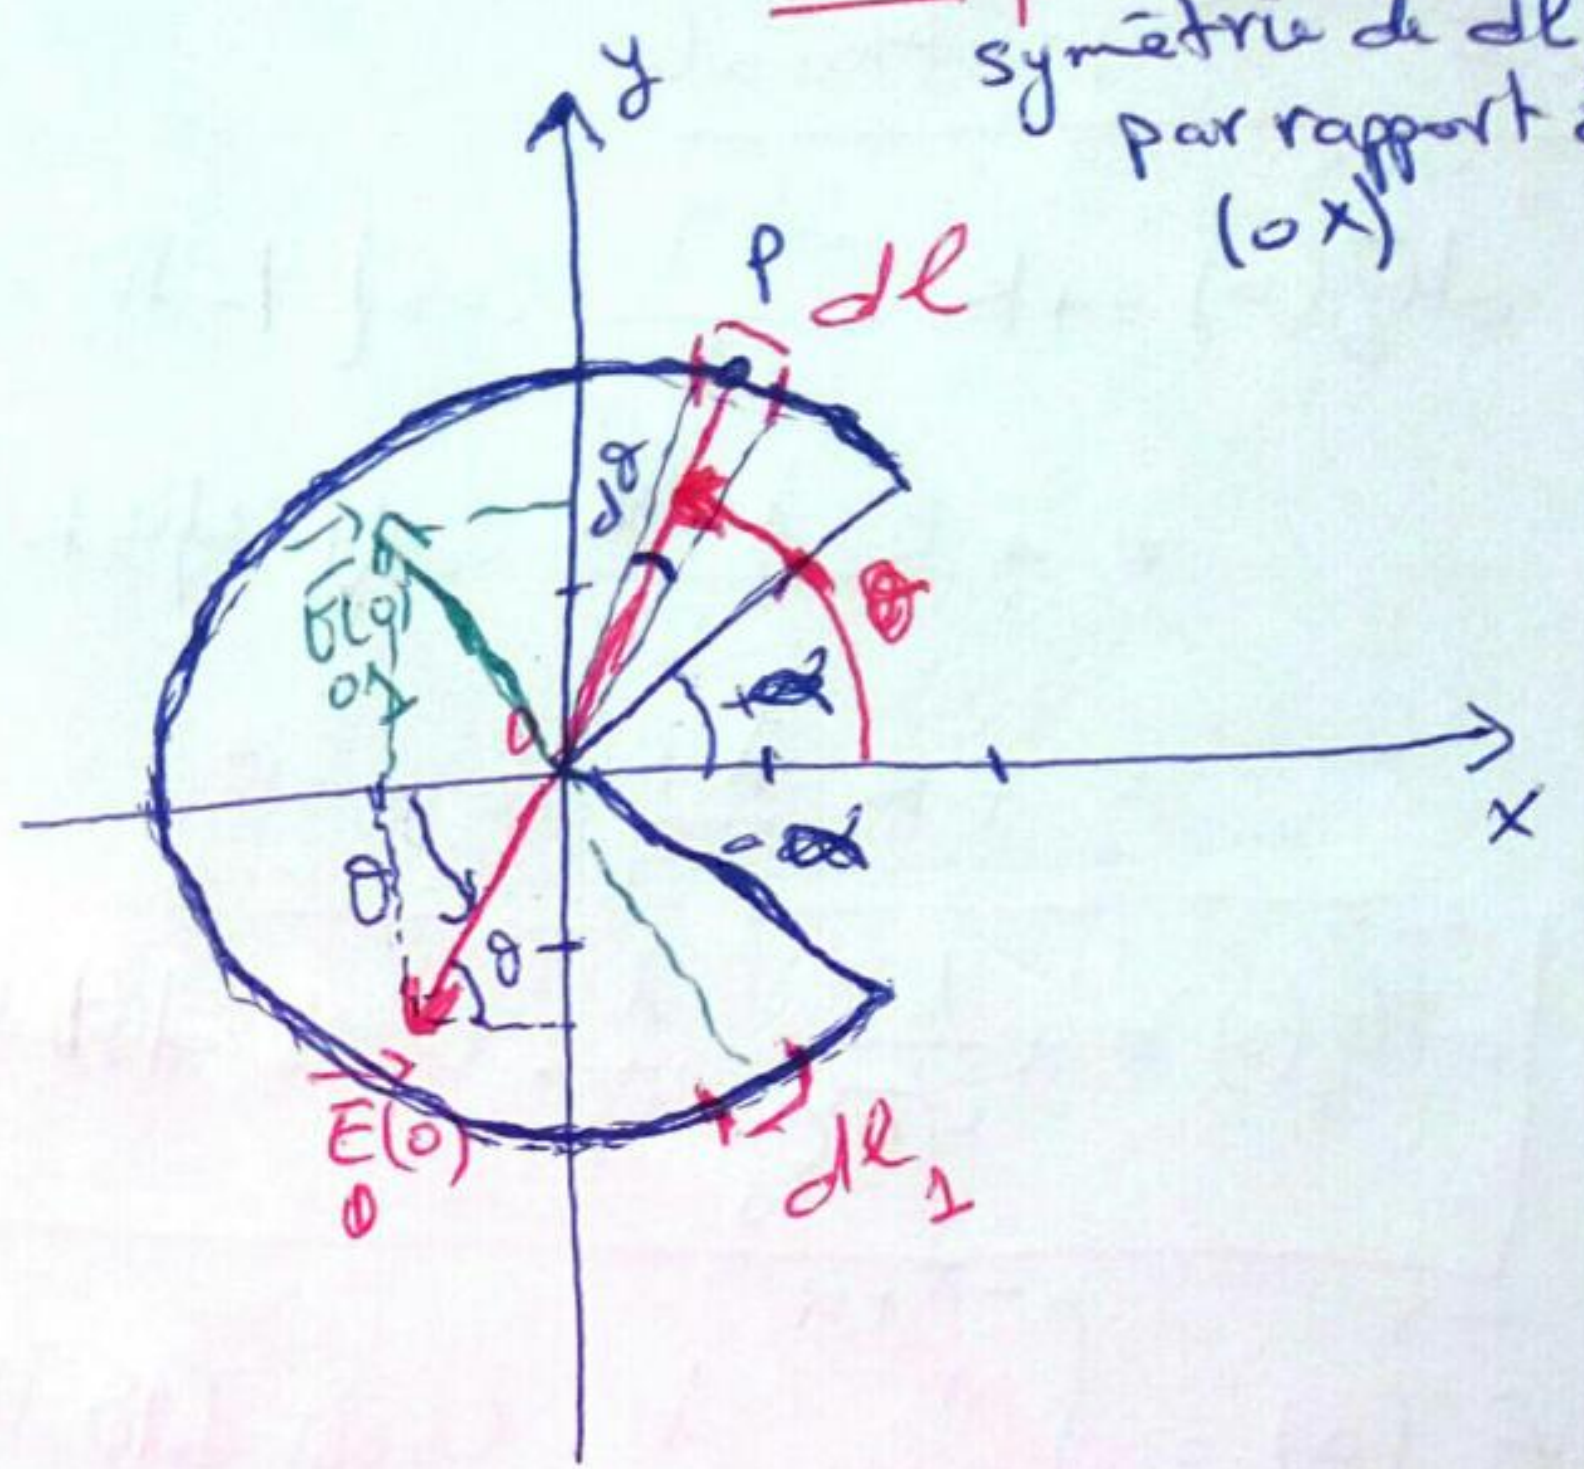 symétrie de dl
par rapport à
(ox)
y
P
dl
dθ
θ
E(o)
01
O
+α
x
-α
θ
θ
E(o)
0
dl1